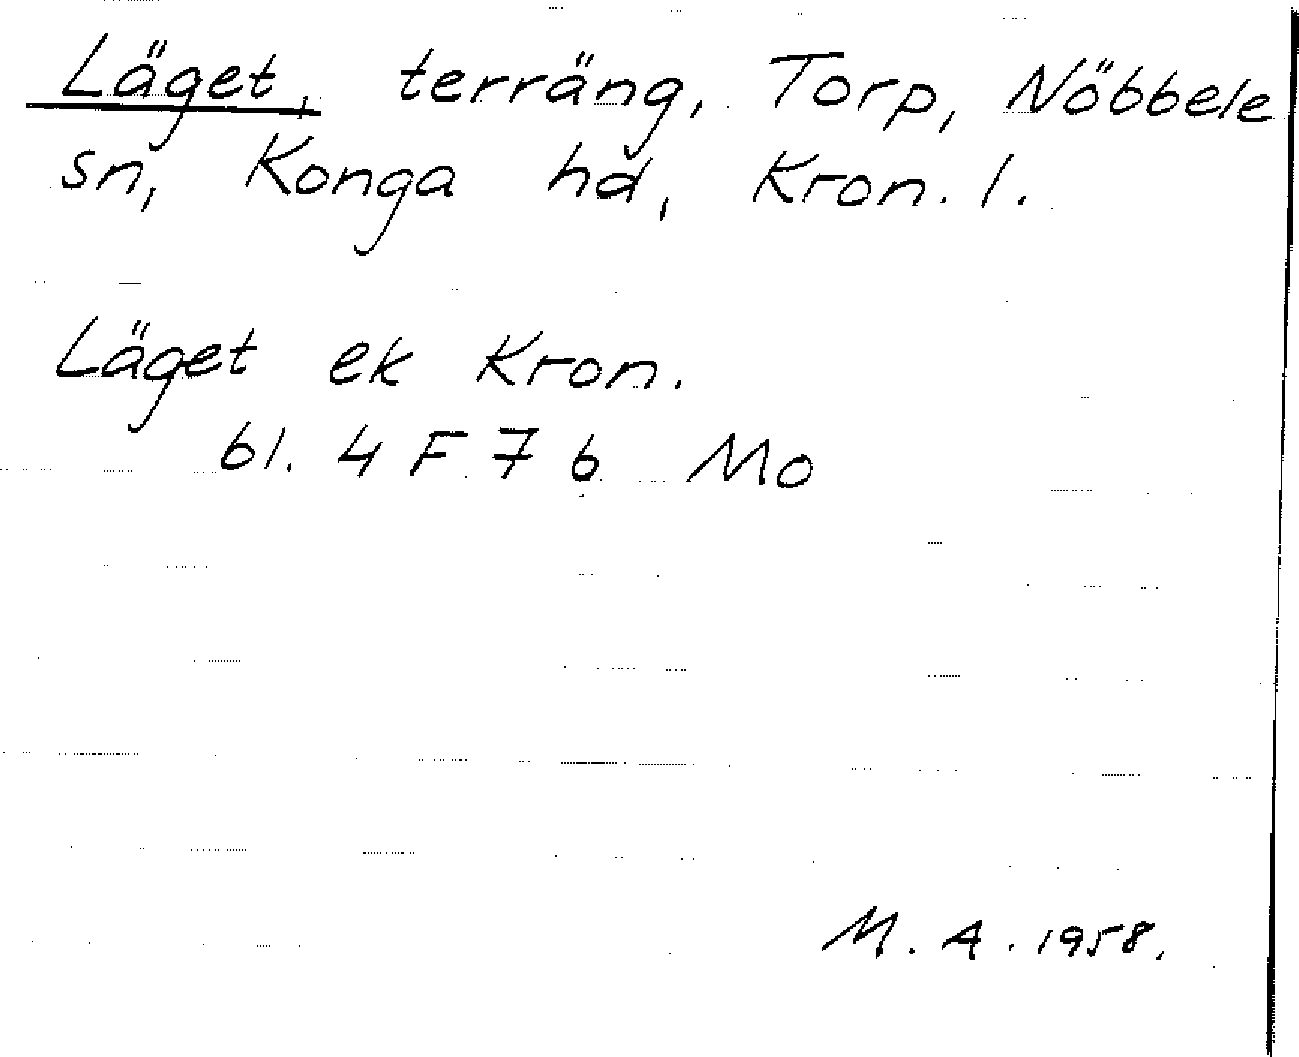 Läget, terräng, Torp, Nöbbele
sn, Konga hd, Kron. l.
Läget ek Kron.
bl. 4 F 7 b Mo
M. A. 1958.